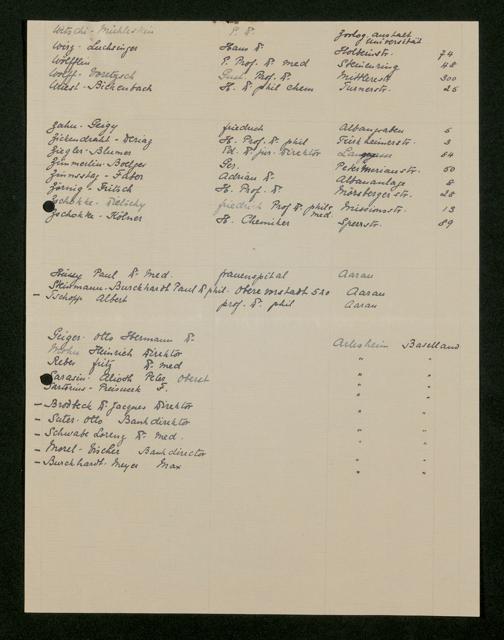 Witschi-Michleskin P. Dr. Zoolog. anstalt Universität
Wirz-Luchsinger Hans Dr. Holbeinstr. 74
Wölfflin P. Prof. Dr. med Steinenring 48
Wolff-Goretzsch Gust. Prof. Dr. Mittlerestr. 300
Wüest-Bickenbach H. Dr. phil chem Turnerstr. 25
Zahn-Geigy friedrich Albangraben 5
Zickendraht-Vering H. Prof. Dr. phil Fürkheimerstr. 3
Ziegler-Blumer Ed. Dr. jur. Direktor 54
Zimmerlin-Boelger Ges. Peter Merianstr. 50
Zinnstag-Faber Adrian Dr. Albananlage 8
Zörnig-Fritsch H. Prof. Dr. Mörsbergerstr. 20
Zschokke-Dietschy friedrich Prof Dr. phil+ med. Missionsstr. 13
Zschokke-Kölner H. Chemiker Speerstr. 89
Hüssy Paul Dr. Med. frauenspital Aarau
Steinmann-Burckhardt Paul Dr phil. Obere Vorstadt 520 Aarau
– Tschopp Albert prof. Dr. phil Aarau
Geiger-Otto Hermann Dr. Arlesheim Baselland
Heinrich Direktor " "
Reber fritz Dr. med " "
Sarasin-Alioth Peter Oberst " "
Sartorius-Preiswerk F. " "
– Brodbeck Dr. Jacques Direktor " "
– Suter-Otto Bankdirektor " "
– Schwabe Lorenz Dr. Med. " "
– Morel-Vischer Bankdirector " "
– Burckhardt-Meyer Max " "